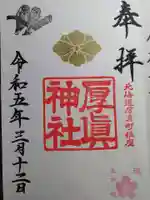 奉拝
北海道厚真町鎮座
厚真
神社
令和五年三月十二日